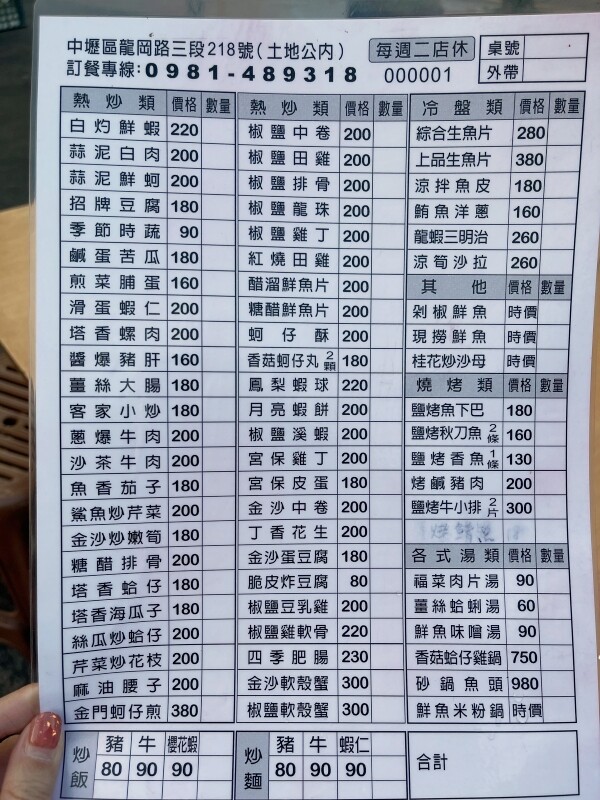 中壢區龍岡路三段218號(土地公內)
訂餐專線:0981-489318
每週二店休
000001
桌號
外帶
熱炒類 價格 數量
白灼鮮蝦 220
蒜泥白肉 200
蒜泥鮮蚵 200
招牌豆腐 180
季節時蔬 90
鹹蛋苦瓜 180
煎菜脯蛋 160
滑蛋蝦仁 200
塔香螺肉 200
醬爆豬肝 160
薑絲大腸 180
客家小炒 180
蔥爆牛肉 200
沙茶牛肉 200
魚香茄子 180
鯊魚炒芹菜 200
金沙炒嫩筍 180
糖醋排骨 200
塔香蛤仔 180
塔香海瓜子 180
絲瓜炒蛤仔 200
芹菜炒花枝 200
麻油腰子 200
金門蚵仔煎 380
熱炒類 價格 數量
椒鹽中卷 200
椒鹽田雞 200
椒鹽排骨 200
椒鹽龍珠 200
椒鹽雞丁 200
紅燒田雞 200
醋溜鮮魚片 200
糖醋鮮魚片 200
蚵仔酥 200
香菇蚵仔丸2顆 180
鳳梨蝦球 220
月亮蝦餅 200
椒鹽溪蝦 200
宮保雞丁 200
宮保皮蛋 180
金沙中卷 200
丁香花生 200
金沙蛋豆腐 180
脆皮炸豆腐 80
椒鹽豆乳雞 200
椒鹽雞軟骨 220
四季肥腸 230
金沙軟殼蟹 300
椒鹽軟殼蟹 300
冷盤類 價格 數量
綜合生魚片 280
上品生魚片 380
涼拌魚皮 180
鮪魚洋蔥 160
龍蝦三明治 260
涼筍沙拉 260
其他 價格 數量
剁椒鮮魚 時價
現撈鮮魚 時價
桂花炒沙母 時價
燒烤類 價格 數量
鹽烤魚下巴 180
鹽烤秋刀魚2條 160
鹽烤香魚1條 130
烤鹹豬肉 200
鹽烤牛小排2片 300
各式湯類 價格 數量
福菜肉片湯 90
薑絲蛤蜊湯 60
鮮魚味噌湯 90
香菇蛤仔雞鍋 750
砂鍋魚頭 980
鮮魚米粉鍋 時價
炒飯 豬 牛 櫻花蝦
80 90 90
炒麵 豬 牛 蝦仁
80 90 90
合計